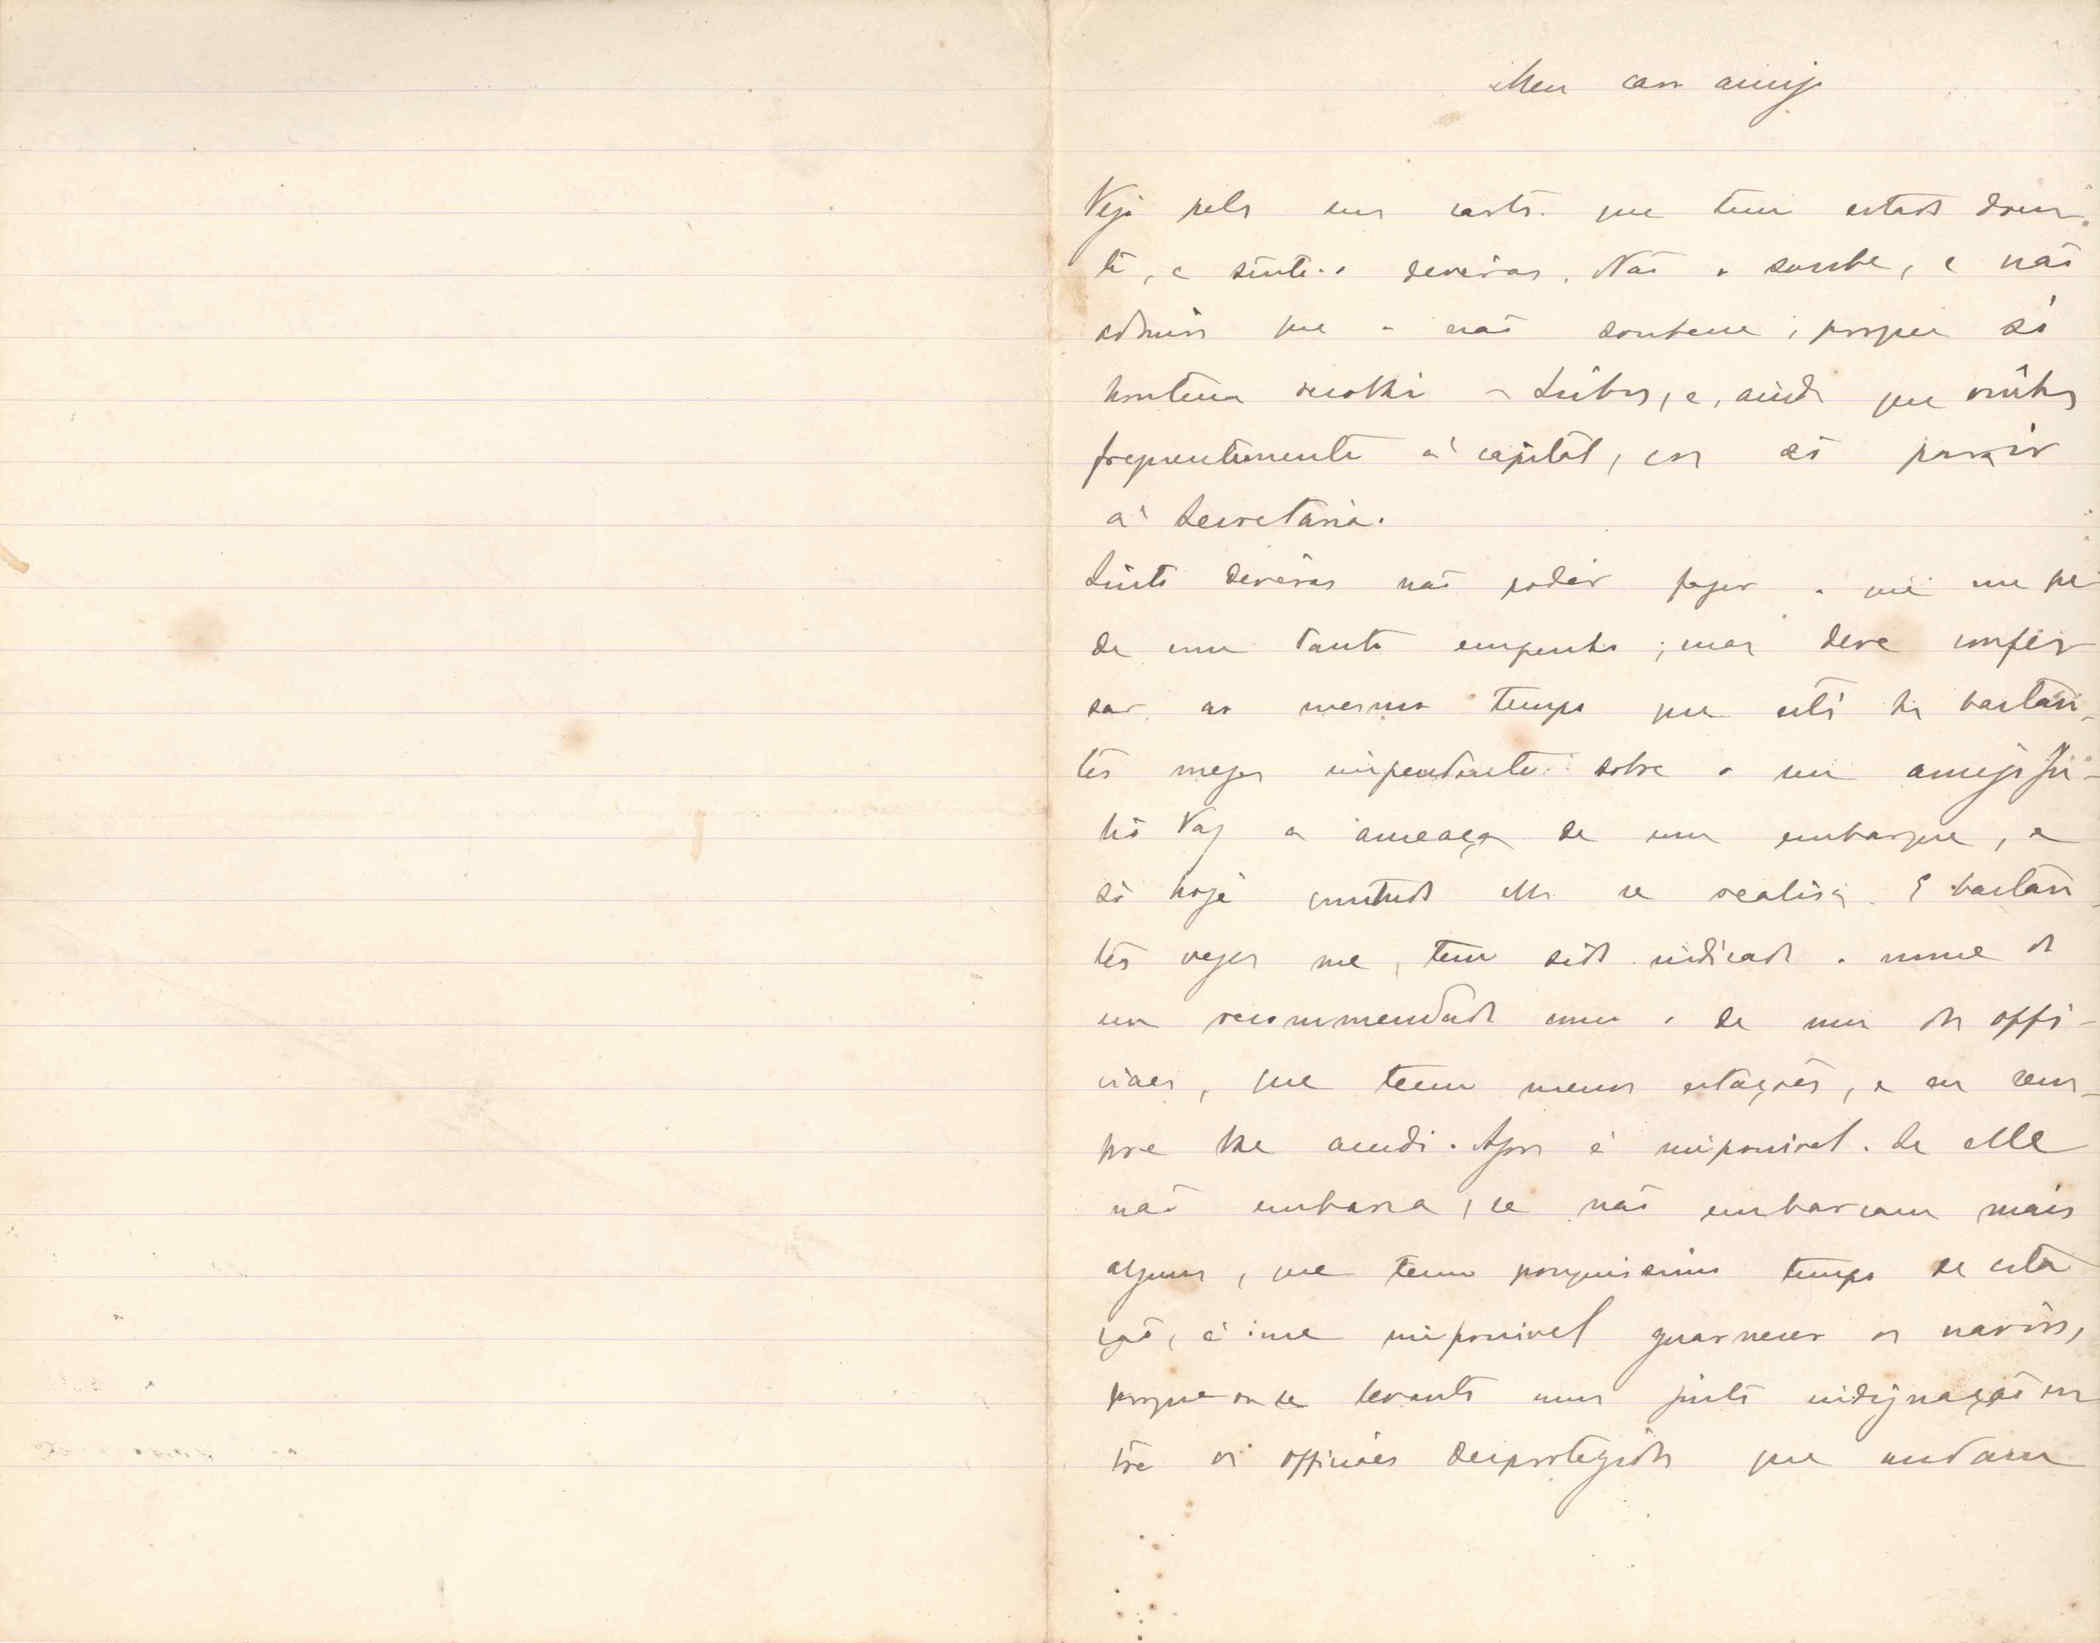 Meu caro amigo
Vejo pela sua carta que tem estado doen-
te, e sinto-o deveras. Não o soube, e não
admira que o não soubesse, porque só
hontem recolhi a Lisboa, e, ainda que vinha
frequentemente á capital, era só para ir
á Secretaria.
Sinto deveras não poder fazer o que me pe-
de com tanto empenho; mas deve confes-
sar ao mesmo tempo que está ha bastan-
tes mezes impendente sobre o seu amigo Ju-
lio Vaz a ameaça de um embarque, e
só hoje comtudo ella se realisa. E bastan-
tes vezes me tem sido indicado o nome do
seu recommendado como o de um dos offi-
ciaes, que teem menos estações, e eu sem-
pre lhe acudi. Agora é impossivel. Se elle
não embarca, se não embarcam mais
alguns, que teem pouquissimo tempo de esta
ção, é-me impossivel guarnecer os navios,
porque ou se levanta uma justa indignação en
tre os officiaes desprotegidos que andam